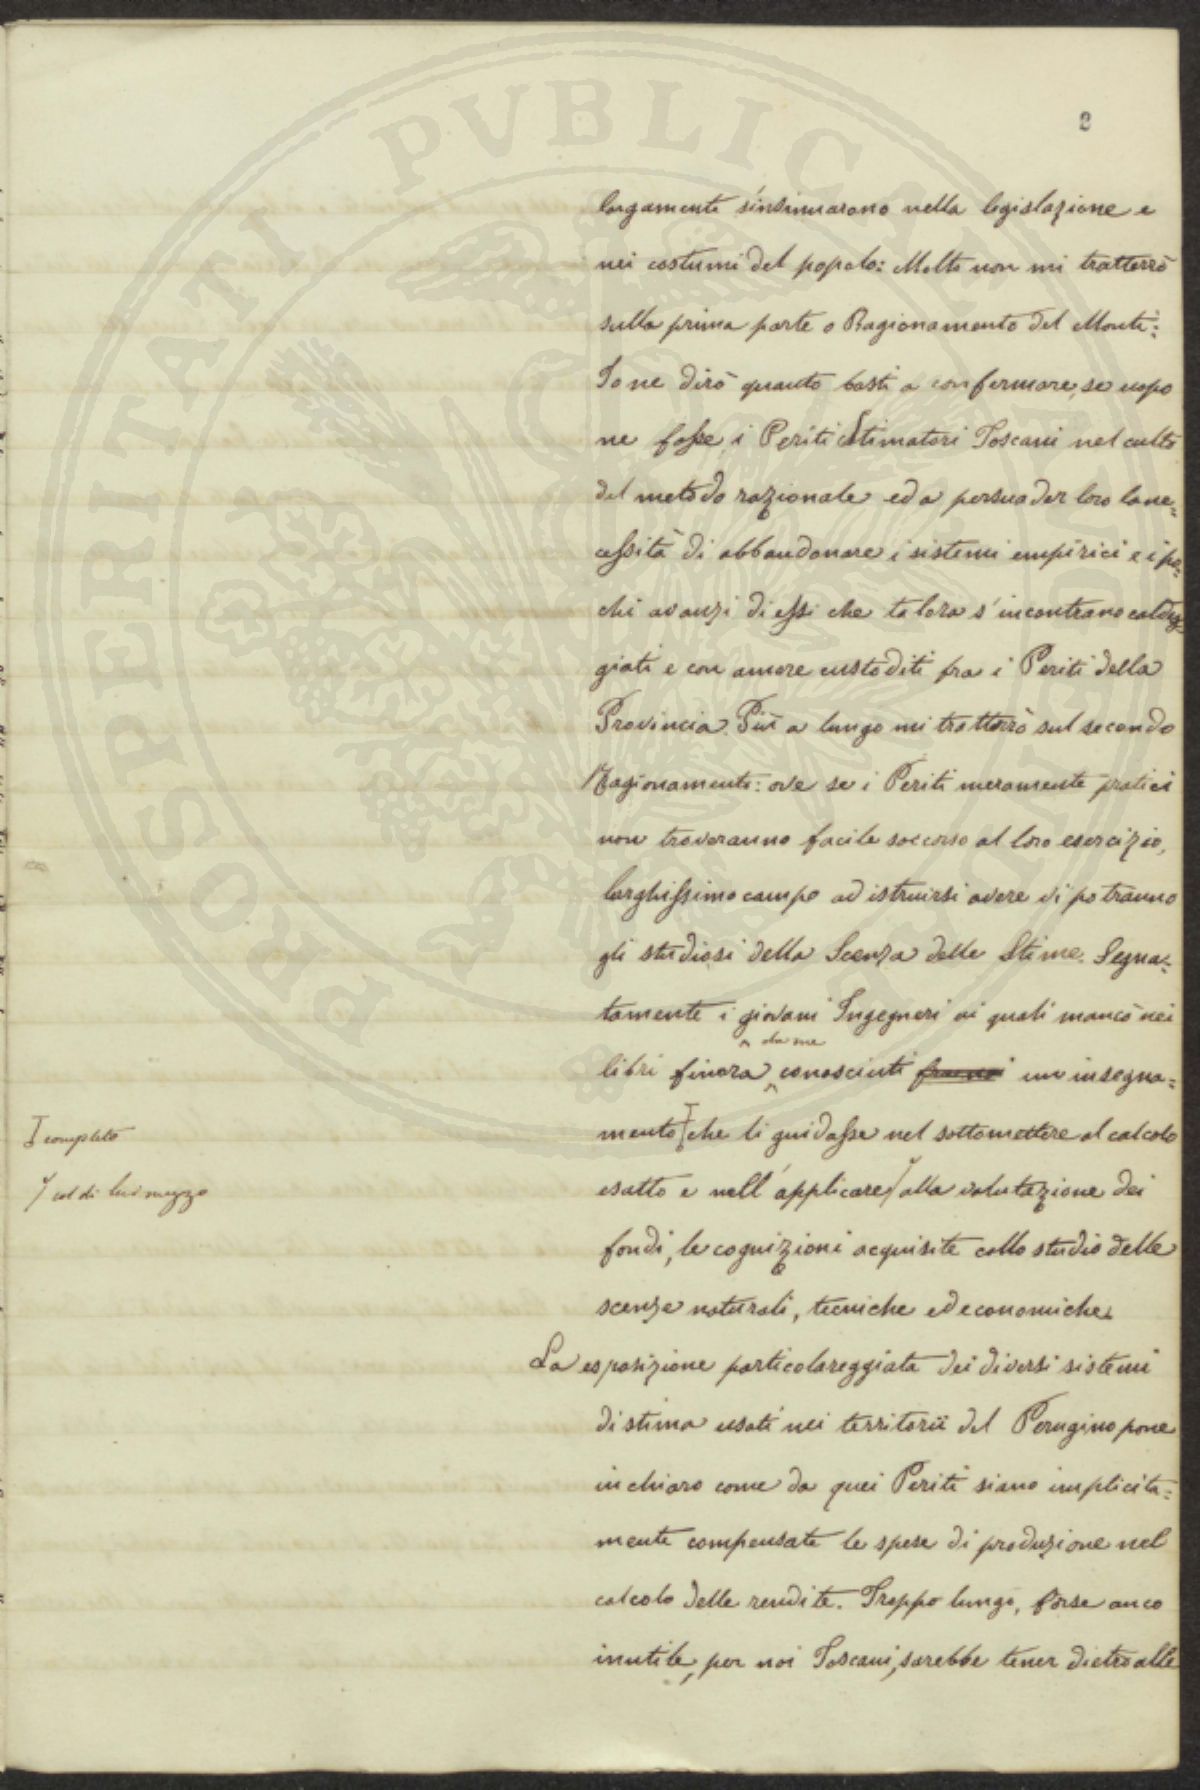 PROSPERITATI PUBLICAE AUGENDAE
2
largamente s'insinuarono nella legislazione e
nei costumi del popolo: Molto non mi tratterrò
sulla prima parte o Ragionamento del Monti:
Io ne dirò quanto basti a confermare, se uopo
ne fosse, i Periti Stimatori Toscani nel culto
del metodo razionale ed a persuader loro la ne=
cessità di abbandonare i sistemi empirici e i po=
chi avanzi di essi che talora s'incontrano caldeg
giati e con amore custoditi fra i Periti della
Provincia. Più a lungo mi tratterrò sul secondo
Ragionamento: ove se i Periti meramente pratici
non troveranno facile soccorso al loro esercizio,
larghissimo campo ad istruirsi avere vi potranno
gli studiosi della Scenza delle Stime. Segna=
tamente i giovani Ingegneri ai quali mancò nei
da me
libri finora conosciuti un insegna=
mento che li guidasse nel sottomettere al calcolo
I completo
esatto e nell'applicare alla valutazione dei
col di lui mezzo
fondi, le cognizioni acquisite collo studio delle
scenze naturali, tecniche ed economiche.
La esposizione particolareggiata dei diversi sistemi
di stima usati nei territorii del Perugino pone
in chiaro come da quei Periti siano implicita=
mente compensate le spese di produzione nel
calcolo delle rendite. Troppo lungo, forse anco
inutile, per noi Toscani, sarebbe tener dietro alle